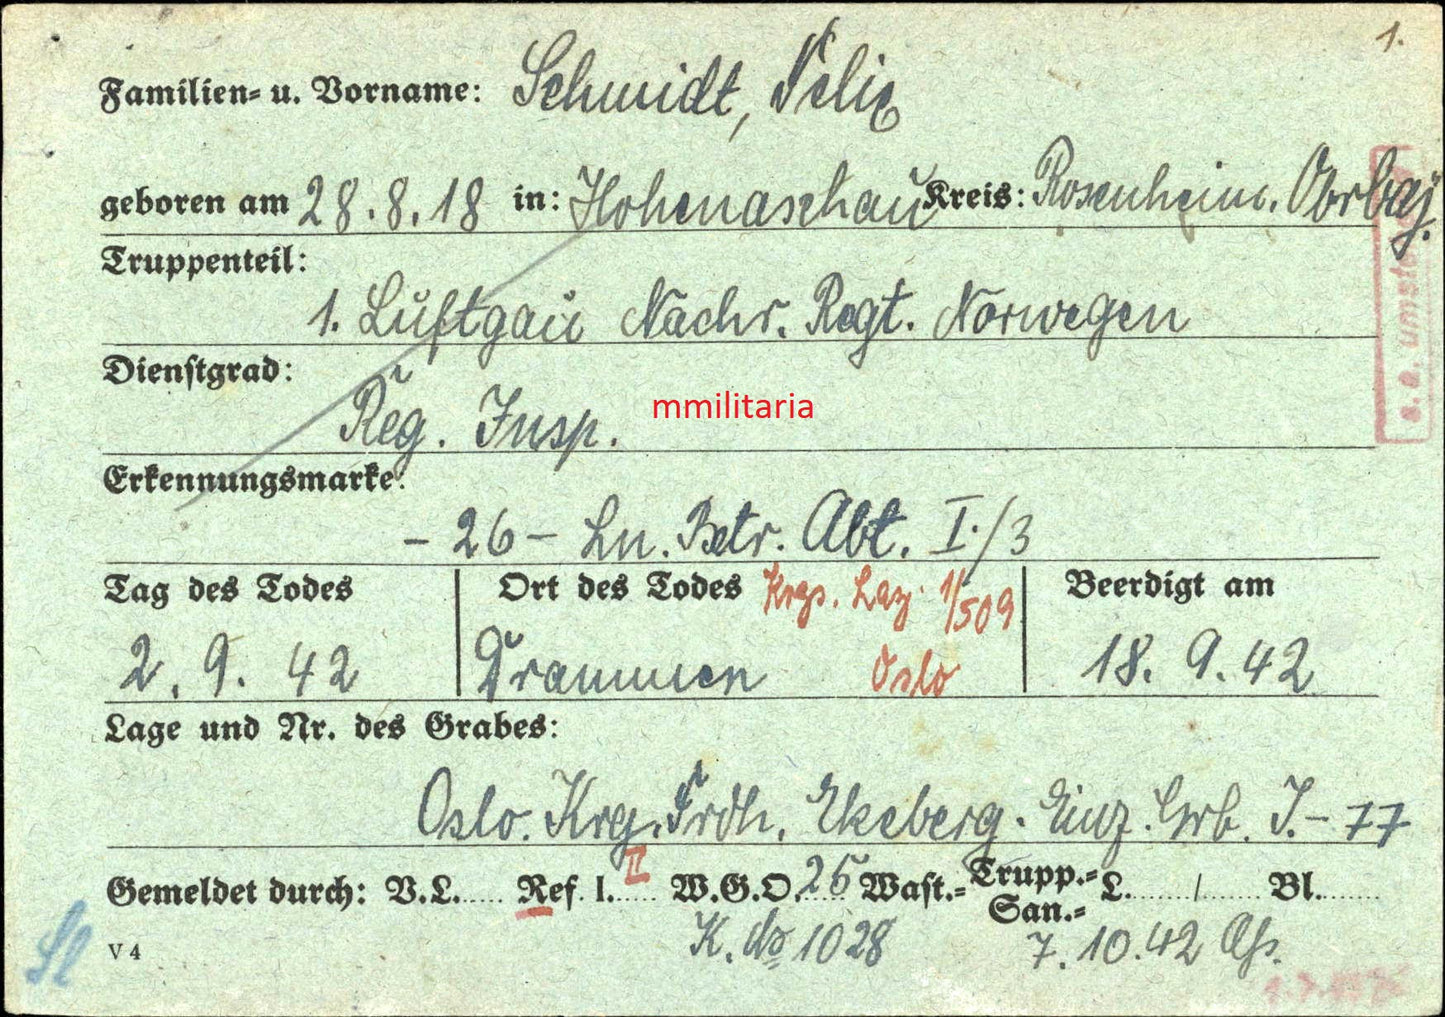 1.
Familien- u. Vorname: Schmidt, Felix
geboren am 28.8.18 in: Hohenaschau Kreis: Rosenheim. Obrbay.
Truppenteil:
1. Luftgau Nachr. Regt. Norwegen
Dienstgrad:
Reg. Insp.
mmilitaria
Erkennungsmarke:
- 26 - Ln. Betr. Abt. I./3
Tag des Todes Ort des Todes Krgs. Laz. 1/509 Beerdigt am
2. 9. 42 Drammen Oslo 18. 9. 42
Lage und Nr. des Grabes:
Oslo. Krg. Frdh. Ekeberg. Einz. Grb. J.- 77
Gemeldet durch: V.L. Ref. I. II W.G.O. 26 Wast.- Trupp.- L. / Bl.
San.-
V 4 K. 1028 7. 10. 42